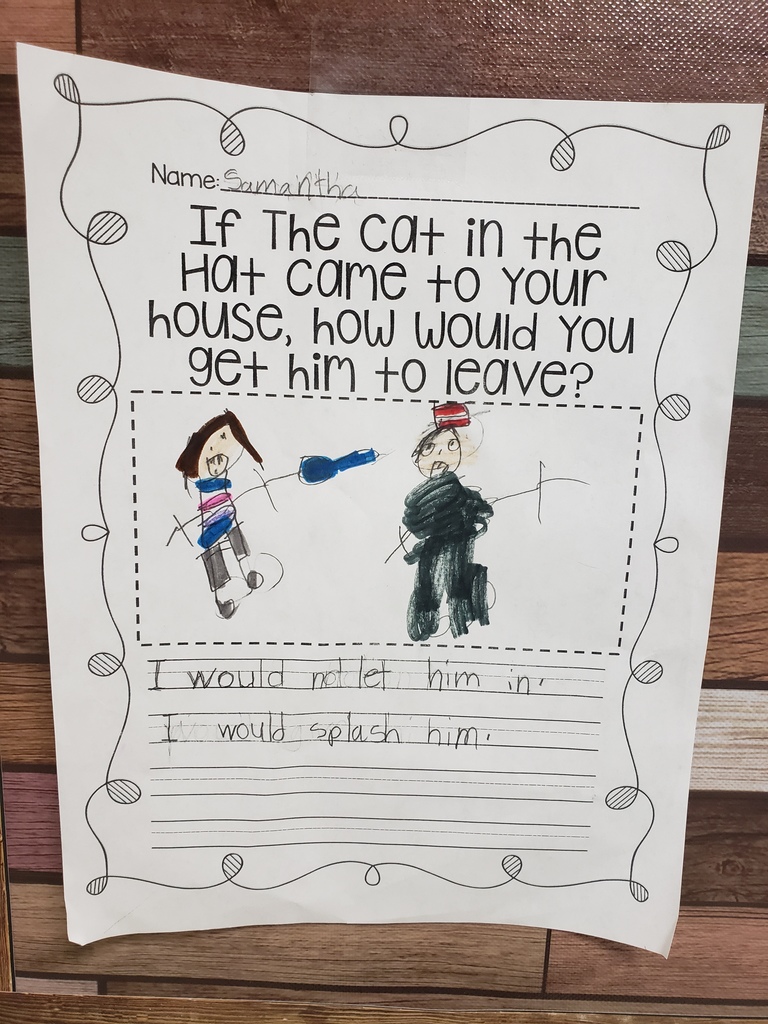 Name: Samantha
If The Cat in the
Hat came to your
house, how would you
get him to leave?
I would not let him in.
I would splash him.